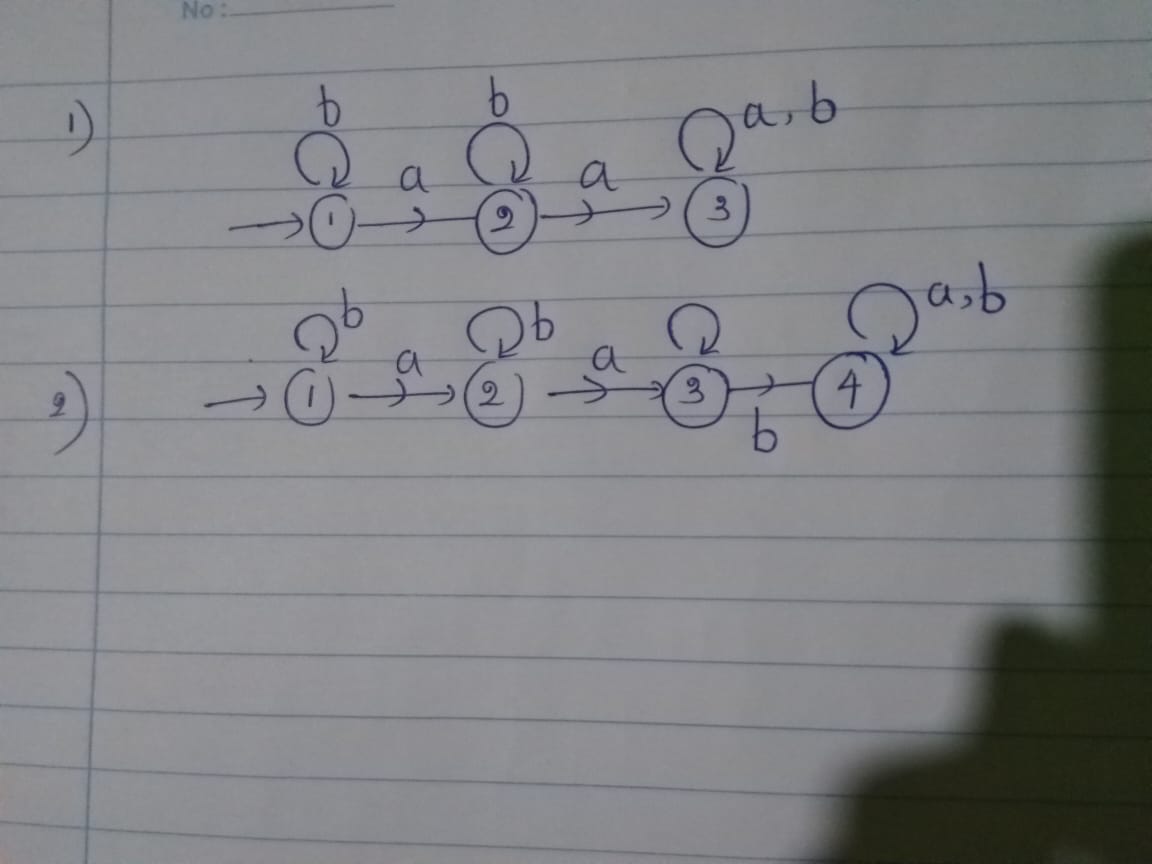 No:
1)
b b a, b
a a
1 2 3
b b a,b
2)
a a
1 2 3 4
b